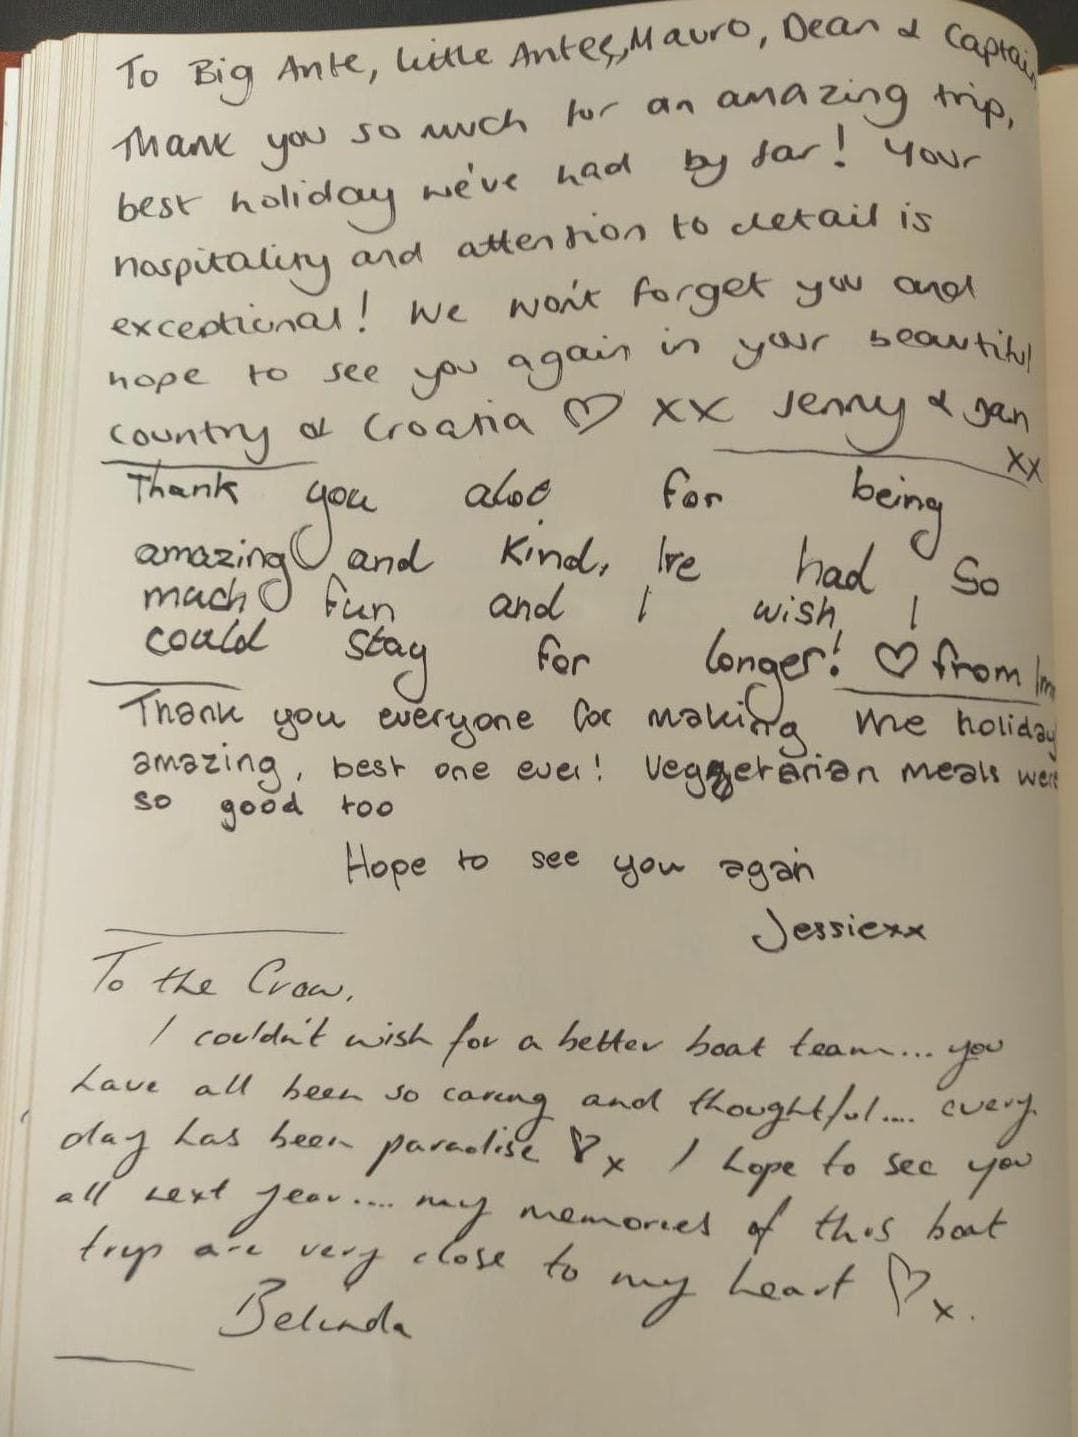 To Big Ante, little Antes, Mauro, Dean & Captain
Thank you so much for an amazing trip,
best holiday we've had by far! Your
hospitality and attention to detail is
exceptional! We won't forget you and
hope to see you again in your beautiful
country of Croatia ♡ xx Jenny & Jan
xx
Thank you also for being
amazing and kind, I've had so
much fun and I wish I
could stay for longer! ♡ from
Thank you everyone for making me holiday
amazing, best one ever! Veggetarian meals were
so good too
Hope to see you again
Jessiexx
To the Crew,
I couldn't wish for a better boat team... you
have all been so caring and thoughtful.... every
day has been paradise ♡x I hope to see you
all next year.... my memories of this boat
trip are very close to my heart ♡x.
Belinda